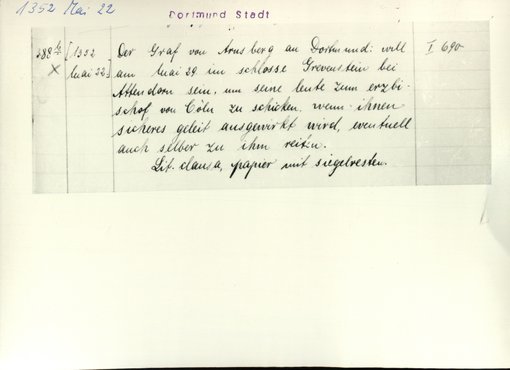 1352 Mai 22
Dortmund Stadt
388 [1352
Mai 22]
Der Graf von Arnsberg an Dortmund: will
am Mai 29 im schlosse Grevenstein bei
Attendorn sein, um seine leute zum erzbi-
schof von Cöln zu schicken, wenn ihnen
sicheres geleit ausgewirkt wird, eventuell
auch selber zu ihm reiten.
Lit. clausa, papier mit siegelresten.
I 690